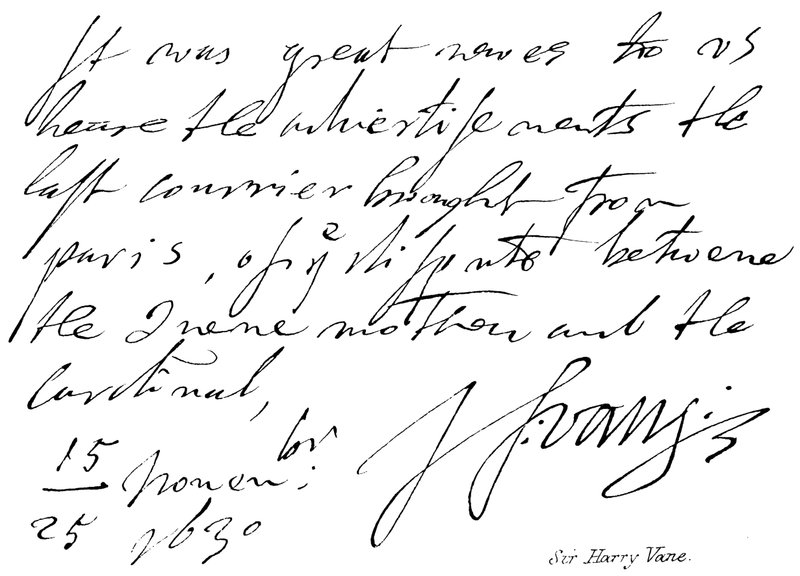 It was great newes to us
heare the advertisements the
last courrier brought from
paris, of yᵉ dispute betweene
the Queene mother and the
Cardinal,
15 Novem ber:
25 1630
Sir Harry Vane.